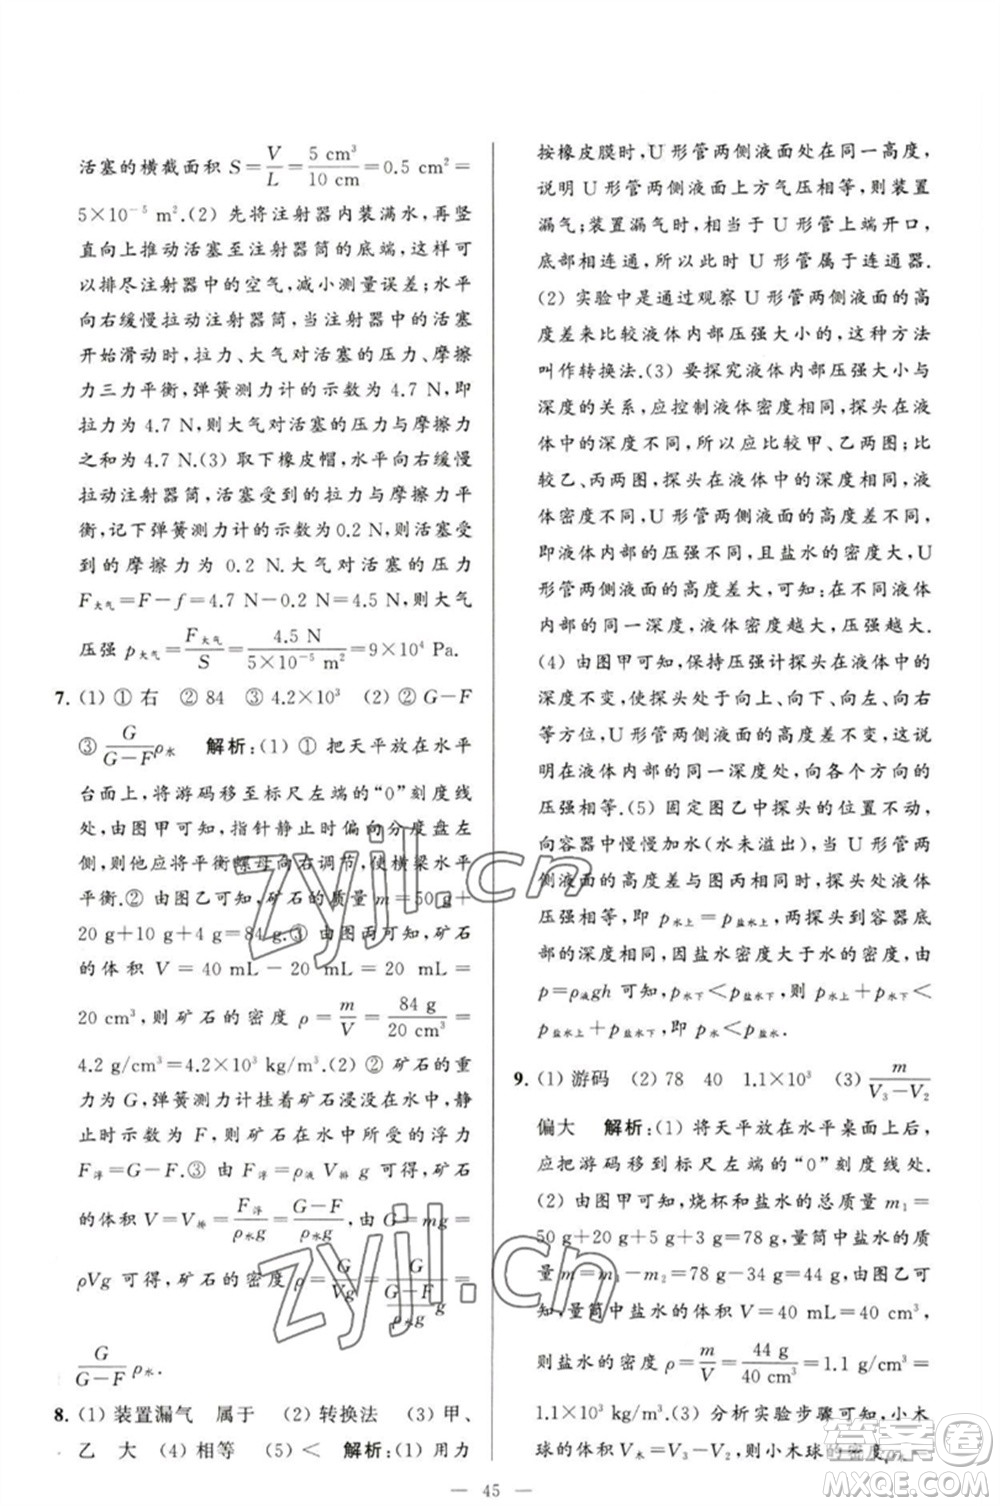 活塞的横截面积 S=V/L=5 cm³/10 cm=0.5 cm²=
5×10⁻⁵ m².(2) 先将注射器内装满水,再竖
直向上推动活塞至注射器筒的底端,这样可
以排尽注射器中的空气,减小测量误差;水平
向右缓慢拉动注射器筒,当注射器中的活塞
开始滑动时,拉力、大气对活塞的压力、摩擦
力三力平衡,弹簧测力计的示数为 4.7 N,即
拉力为 4.7 N.则大气对活塞的压力与摩擦力
之和为 4.7 N.(3) 取下橡皮帽,水平向右缓慢
拉动注射器筒,活塞受到的拉力与摩擦力平
衡,记下弹簧测力计的示数为 0.2 N,则活塞受
到的摩擦力为 0.2 N.大气对活塞的压力
F大气=F-f=4.7 N-0.2 N=4.5 N,则大气
压强 p大气=F大气/S=4.5 N/5×10⁻⁵ m²=9×10⁴ Pa.
7. (1) ① 右 ② 84 ③ 4.2×10³ (2) ② G-F
③ G/(G-F)ρ水 解析:(1) ① 把天平放在水平
台面上,将游码移至标尺左端的“0”刻度线
处,由图甲可知,指针静止时偏向分度盘左
侧,则他应将平衡螺母向右调节,使横梁水平
平衡.② 由图乙可知,矿石的质量 m=50 g+
20 g+10 g+4 g=84 g.③ 由图丙可知,矿石
的体积 V=40 mL-20 mL=20 mL=
20 cm³,则矿石的密度 ρ=m/V=84 g/20 cm³=
4.2 g/cm³=4.2×10³ kg/m³.(2) ② 矿石的重
力为 G,弹簧测力计挂着矿石浸没在水中,静
止时示数为 F,则矿石在水中所受的浮力
F浮=G-F.③ 由 F浮=ρ液 V排 g 可得,矿石
的体积 V=V排=F浮/ρ水g=(G-F)/ρ水g,由 G=mg=
ρVg 可得,矿石的密度 ρ=G/Vg=G/((G-F)/ρ水g · g)=
G/(G-F)ρ水.
8. (1) 装置漏气 属于 (2) 转换法 (3) 甲、
乙 大 (4) 相等 (5) < 解析:(1) 用力
按橡皮膜时,U 形管两侧液面处在同一高度,
说明 U 形管两侧液面上方气压相等,则装置
漏气;装置漏气时,U 形管上端开口,
底部相连通,所以此时 U 形管属于连通器.
(2) 实验中是通过观察 U 形管两侧液面的高
度差来比较液体内部压强大小的,这种方法
叫作转换法.(3) 要探究液体压强大小与
深度的关系,应控制液体密度相同,探头在液
体中的深度不同,所以应比较甲、乙两图;比
较乙、丙两图,探头在液体中的深度相同,液体
密度不同,U 形管两侧液面的高度差不同,
即液体内部的压强不同,且盐水的密度大,U
形管两侧液面的高度差大,可知:在不同液体
内部的同一深度,液体密度越大,压强越大.
(4) 由图甲可知,保持压强计探头在液体中的
深度不变,使探头处于向上、向下、向左、向右
等方位时,U 形管两侧液面的高度差不变,
说明在液体内部的同一深度处,向各个方向的
压强相等.(5) 固定图乙中探头的位置不动,
向容器中慢慢加水(水未溢出),当 U 形管两
侧液面的高度差与图丙相同时,探头处液体
压强相等,即 p水上=p盐水上,两探头到容器底部
的深度相同,因盐水密度大于水的密度,由
p=ρ液gh 可知,p水下<p盐水下,则 p水上+p水下<
p盐水上+p盐水下,即 p水<p盐水.
9. (1) 游码 (2) 78 40 1.1×10³ (3) m/(V₃-V₂)
偏大 解析:(1) 将天平放在水平桌面上后,
应把游码移到标尺左端的“0”刻度线处.
(2) 由图甲可知,烧杯和盐水的总质量 m₁=
50 g+20 g+5 g+3 g=78 g,量筒中盐水的质
量 m=m₁-m₂=78 g-34 g=44 g;由图乙可
知,量筒中盐水的体积 V=40 mL=40 cm³,
则盐水的密度 ρ=m/V=44 g/40 cm³=1.1 g/cm³=
1.1×10³ kg/m³.(3) 分析实验步骤可知,小木
球的体积 V木=V₃-V₂,则小木球的密度 ρ木
45
zyjl.cn
zyjl.cn
答案圈
MXQE.COM